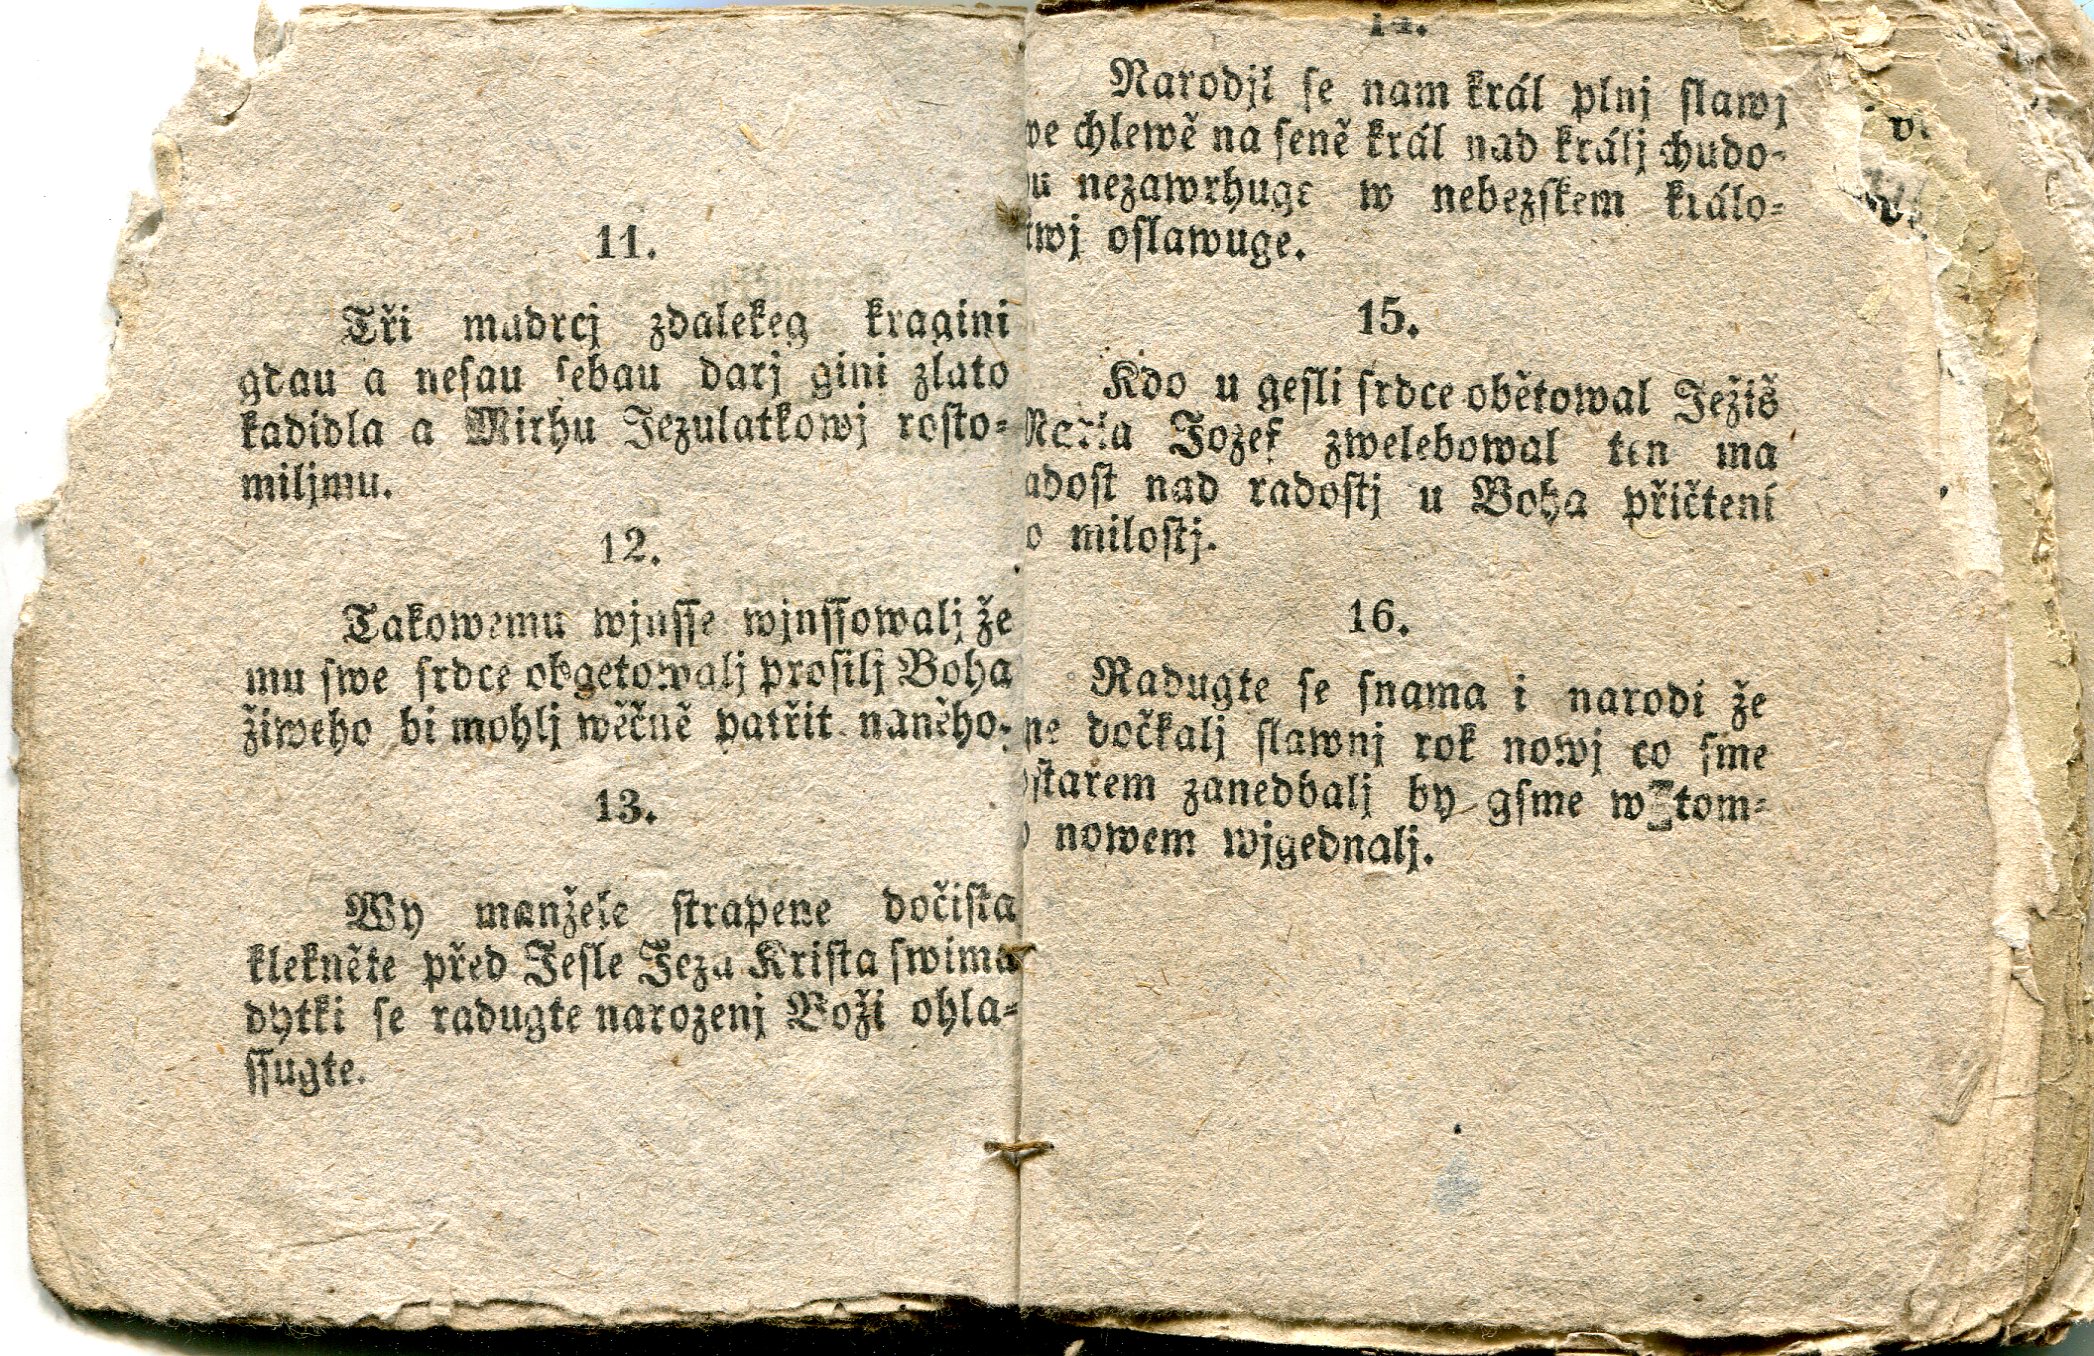 11.
Tři mudrcj zdalekeg kragini
gdau a nesau sebau darj gini zlato
kadidla a Mirhu Jezulatkowj rosto=
miljmu.
12.
Takowemu wjnsse wjnssowalj že
mu swe srdce obgetowalj prosilj Boha
žiweho bi mohlj wěčně patřit naněho.
13.
Wy manžele strapene dočista
klekněte před Jesle Jezu Krista swima
dytki se radugte narozenj Boži ohla=
ssugte.
14.
Narodjl se nam král plnj slawj
we chlewě na seně král nad králj chudo=
bu nezawrhuge w nebezskem králo=
stwj oslawuge.
15.
Kdo u gesli srdce obětowal Ježiš
Maria Jozef zwelebowal ten ma
radost nad radostj u Boha přičtení
o milostj.
16.
Radugte se snama i narodi že
sme dočkalj slawnj rok nowj co sme
starem zanedbalj by gsme w tom=
to nowem wjgednalj.